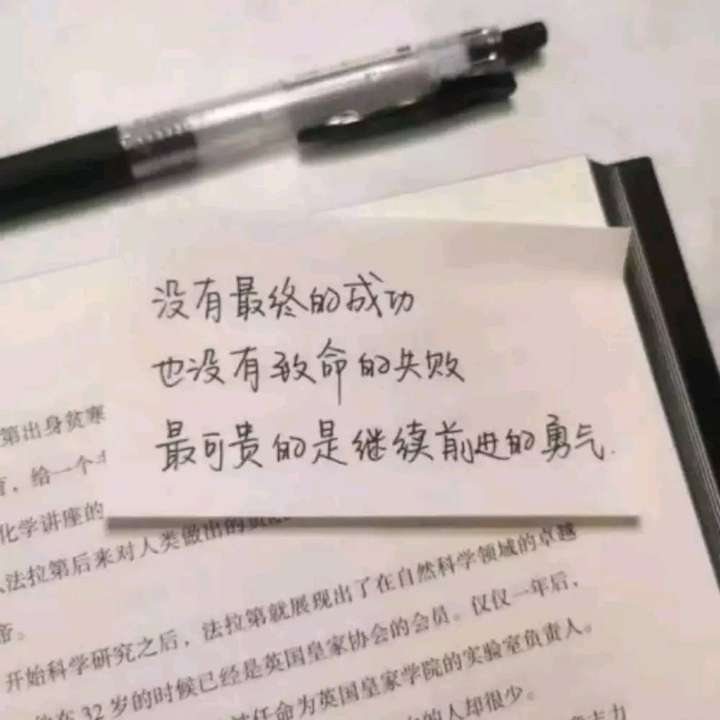 没有最终的成功
也没有致命的失败
最可贵的是继续前进的勇气.
第出身贫寒
，给一个
化学讲座的
法拉第后来对人类做出的
帝。
开始科学研究之后，法拉第就展现出了在自然科学领域的卓越
在 32 岁的时候已经是英国皇家协会的会员。仅仅一年后，
任命为英国皇家学院的实验室负责人。
的人却很少。